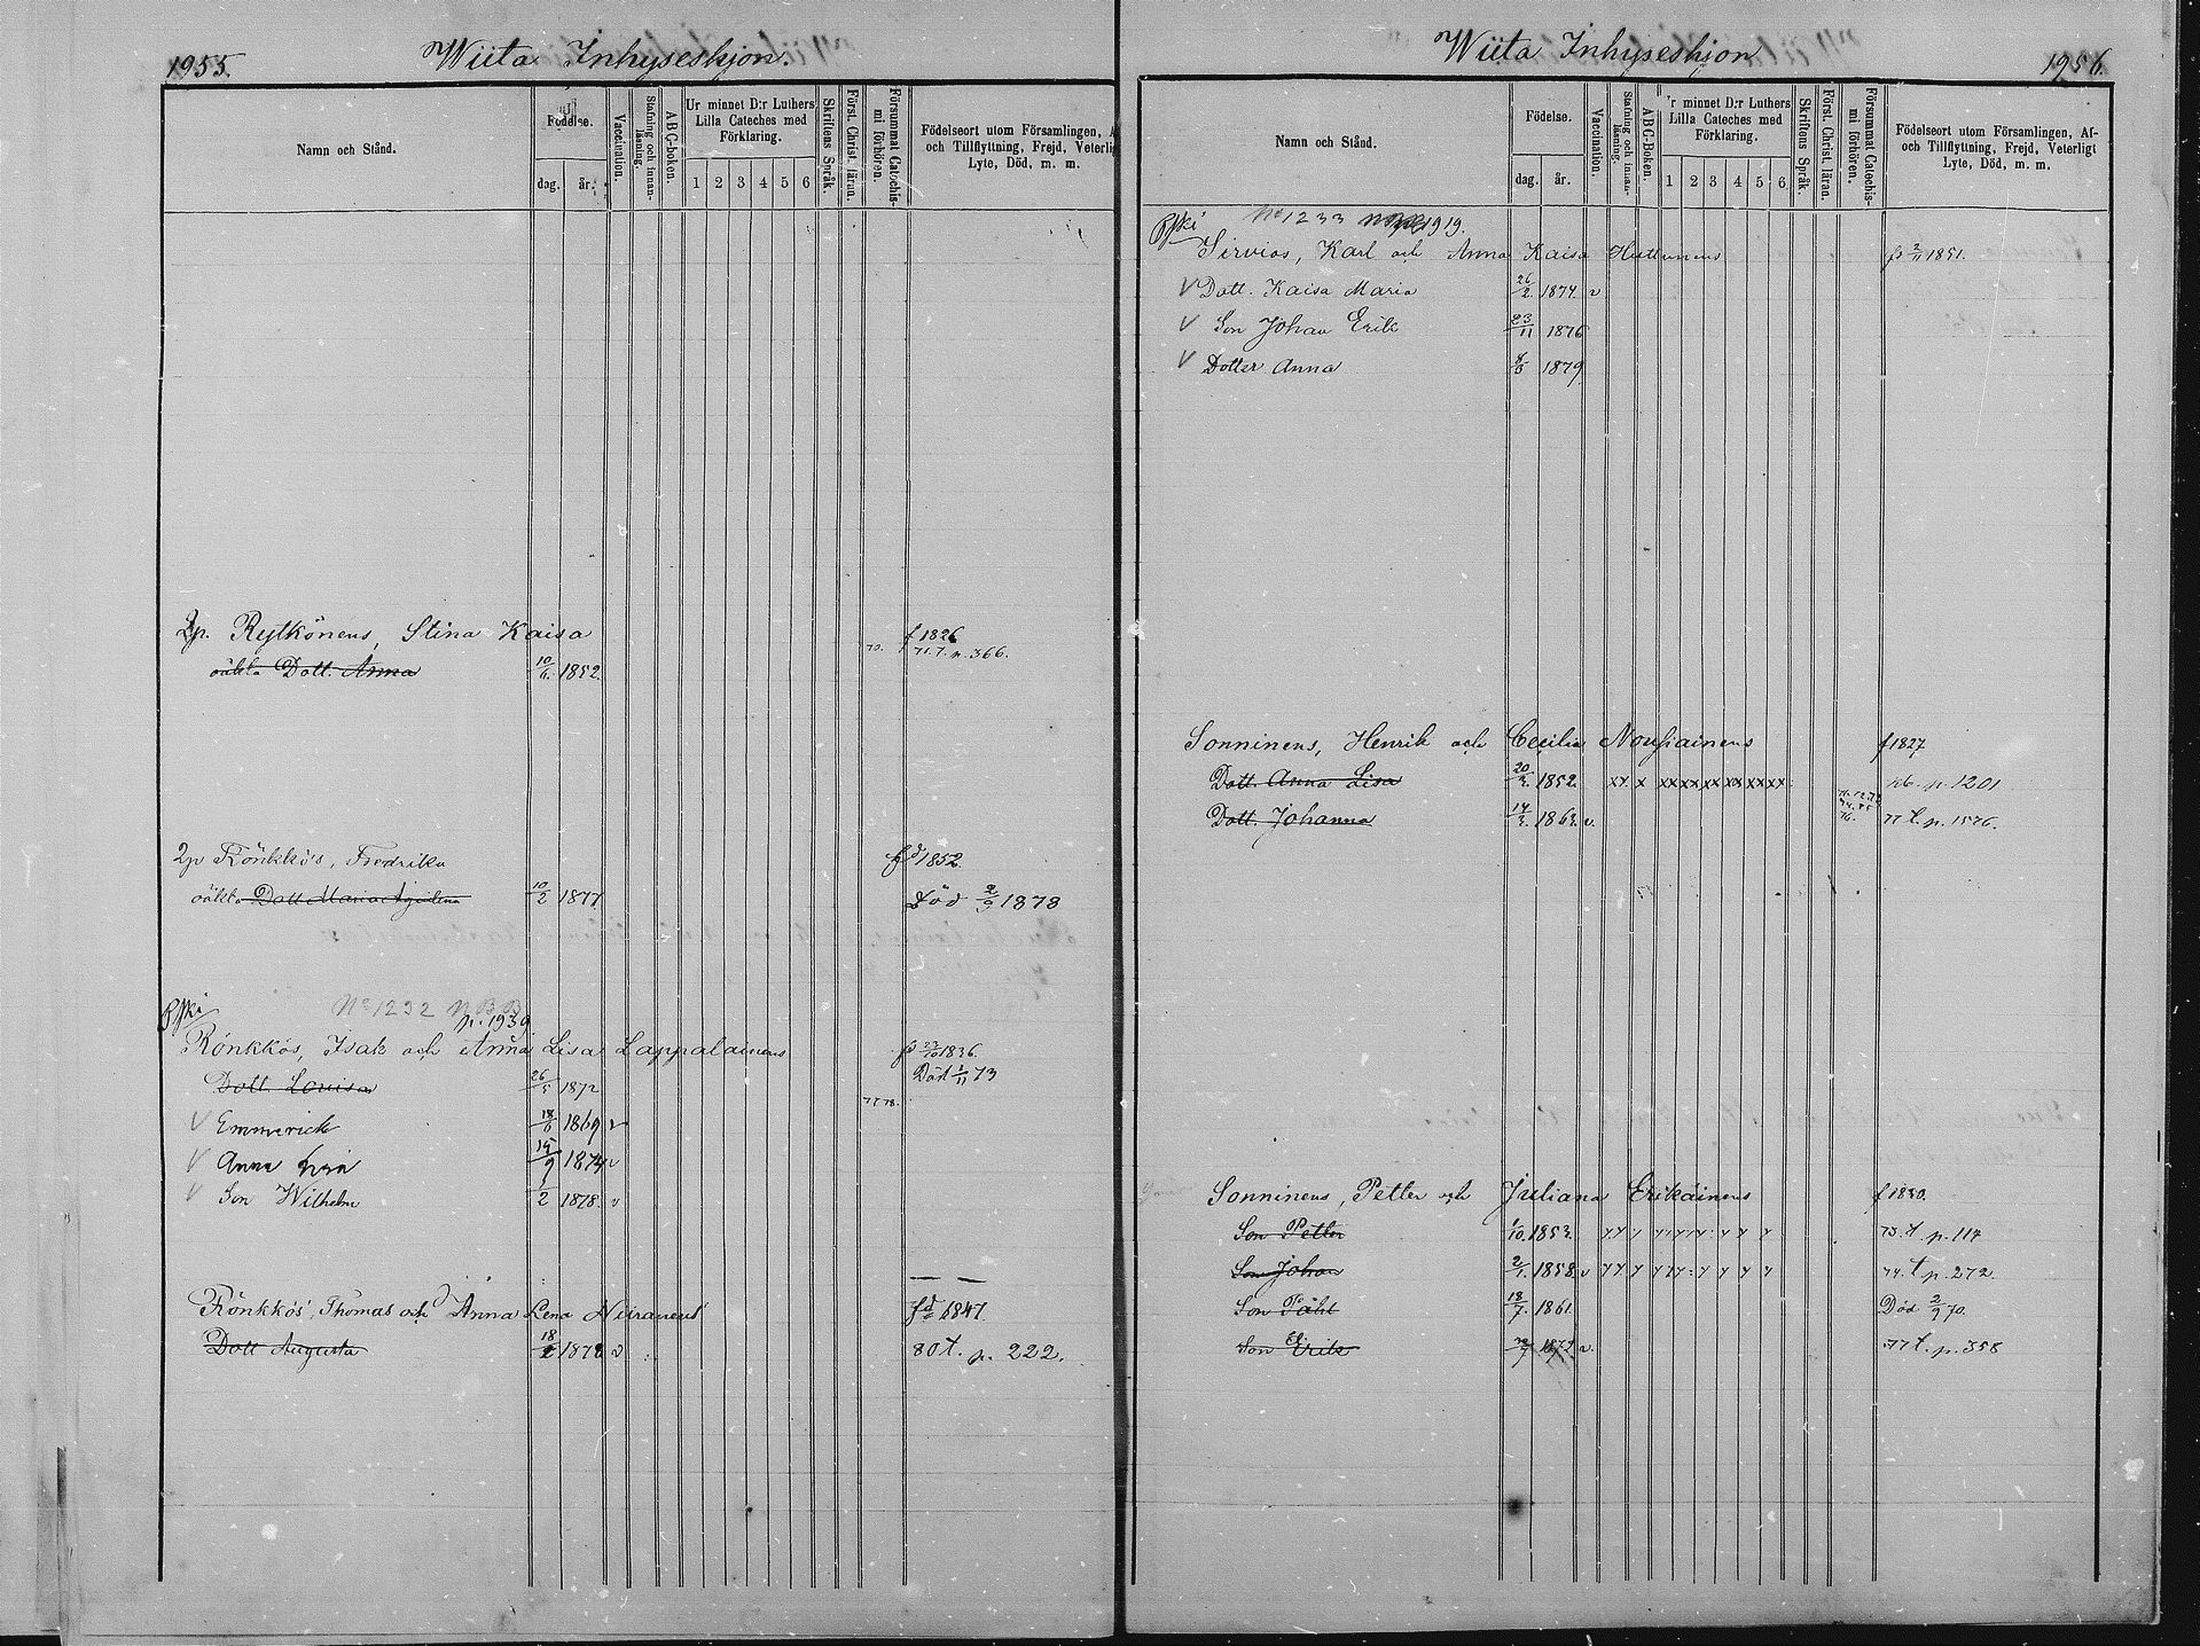 1955.
Wiita Inhyseshjon.
Namn och Stånd.
Födelse.
dag.
år.
Vaccination.
Stafning och innan-
läsning.
A B C-boken.
Ur minnet D:r Luthers
Lilla Cateches med
Förklaring.
1 2 3 4 5 6
Skriftens Språk.
Först. Christ. läran.
Försummat Catechis-
mi förhören.
Födelseort utom Församlingen, A
och Tillflyttning, Frejd, Veterli
Lyte, Död, m. m.
2p. Rytkönens, Stina Kaisa f 1826
oäkta Dott. Anna 10/6. 1852. 70. 71. t. p. 366.
2p Rönkkö's, Fredrika fd 1852.
oäkta Dott Maria 10/2 1877 Död 2/9 1878
No 1232
p. 1939
Rönkkös, Isak och Anna Lisa Lappalainens f 23/10 1836.
Dott. Lovisa 26/5 1872 Död 1/11 73
77 78.
V Emmerick 18/6 1869 v
V Anna 15/9 1874 v
V Son Wilhelm 1/2 1878. v
Rönkkös', Thomas och Anna Lena Niiranens' fd 1847.
Dott Augusta 18/2 1878 v 80 t. p. 222.
Wiita Inhyseshjon
1956.
Namn och Stånd.
Födelse.
dag.
år.
Vaccination.
Stafning och innan-
läsning.
ABC-Boken.
'r minnet D:r Luthers
Lilla Cateches med
Förklaring.
1 2 3 4 5 6
Skriftens Språk.
Först. Christ. läran.
Försummat Catechis-
mi förhören.
Födelseort utom Församlingen, Af-
och Tillflyttning, Frejd, Veterligt
Lyte, Död, m. m.
No 1233 1919.
Sirvios, Karl och Anna Kaisa Huttunens f 2/11 1851.
V Dott. Kaisa Maria 26/2. 1874. v
V Son Johan Erik 23/11 1876
V Dotter Anna 1879
Sonninens, Henrik och Cecilia Nousiainens f 1827
Dott. Anna Lisa 20/3. 1852. xx x xx xx xx xx xx xx p. 1201
Dott. Johanna 14/3. 1863. v. 77 t. p. 1576.
Sonninens, Petter och Juliana Erikäinens f 1830.
Son Petter 1/10. 1853. 73. t. p. 114
Son Johan 2/1. 1858. v 74. t p. 272.
Son Påhl 18/7. 1861 Död 2/9 70.
Son Erik 1872. v. 77 t. p. 358